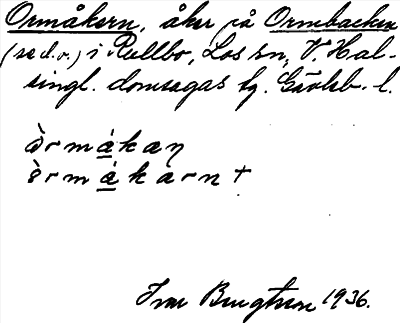 Ormåkern, åker på Ormbacken
(se d.o.) i Rullbo, Los sn, V. Häl-
singl. domsagas tg. Gävleb. l.
òrmákaṇ
òrmákarn +
Ivar Bengtsson 1936.